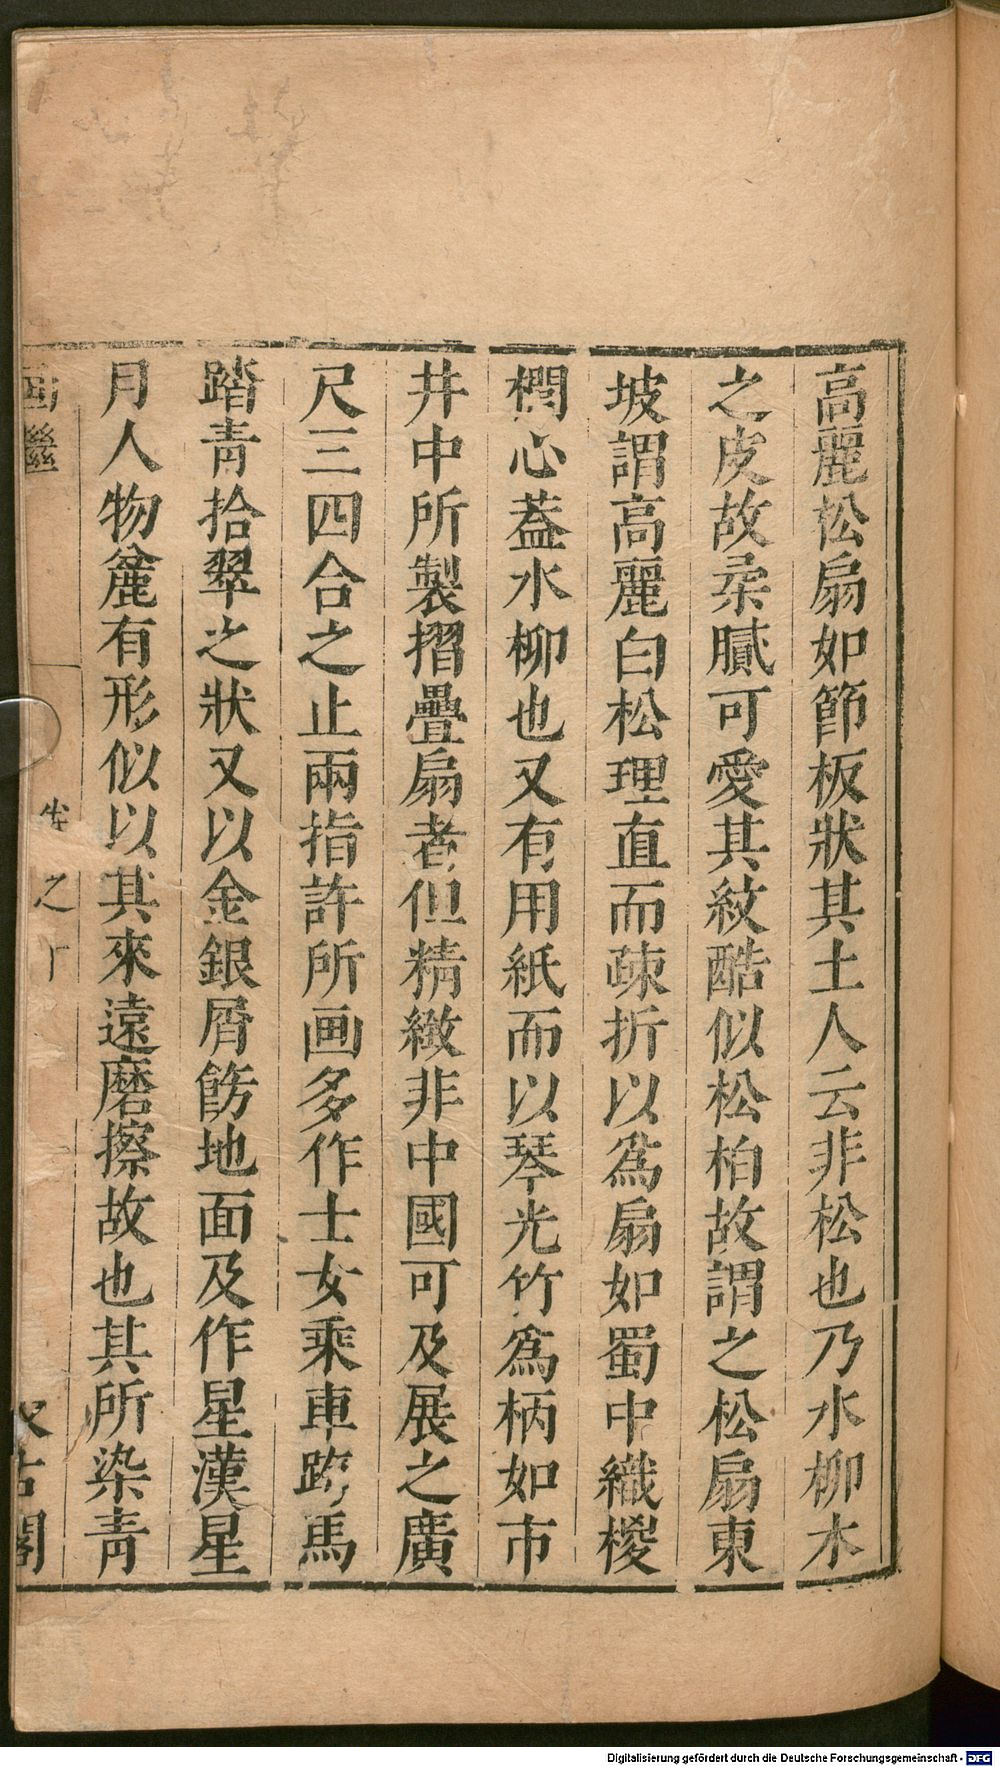 高麗松扇如節板狀其土人云非松也乃水柳木
之皮故柔膩可愛其紋酷似松柏故謂之松扇東
坡謂高麗白松理直而疎折以爲扇如蜀中織椶
櫚心蓋水柳也又有用紙而以琴光竹爲柄如市
井中所製摺疊扇者但精緻非中國可及展之廣
尺三四合之止兩指許所画多作士女乘車跨馬
踏青拾翠之狀又以金銀屑飾地面及作星漢星
月人物麄有形似以其來遠磨擦故也其所染青
画繼
卷之十
汲古閣
Digitalisierung gefördert durch die Deutsche Forschungsgemeinschaft - DFG